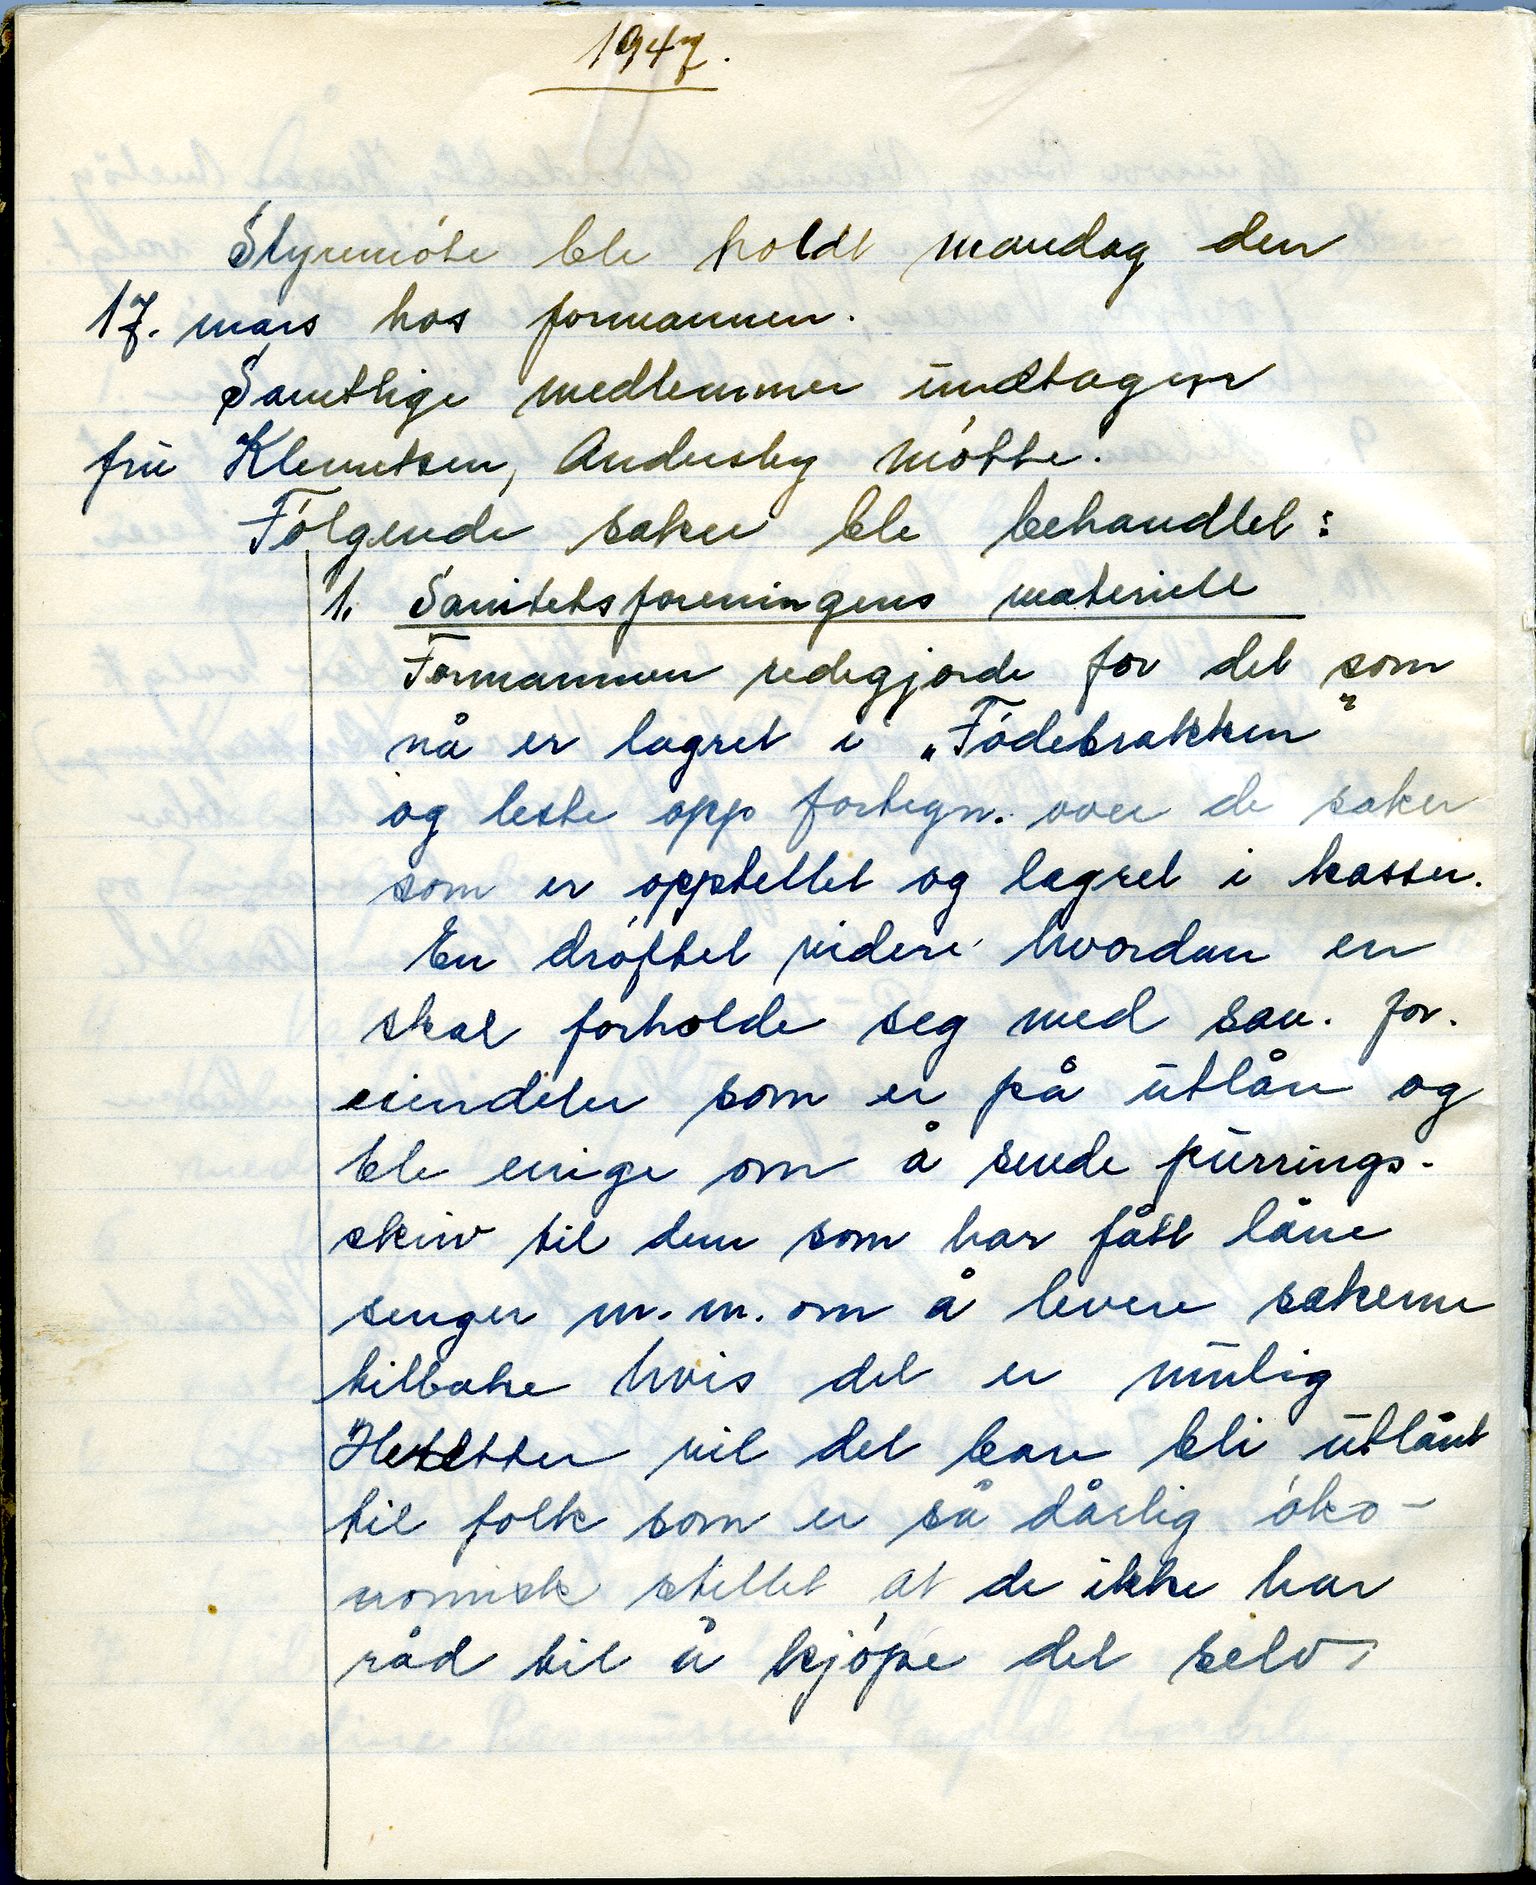 1947.
Styremöte ble holdt mandag den
17. mars hos formannen.
Samtlige medlemmer undtagen
fru Klemetsen, Andersby mötte.
Fölgende saker ble behandlet:
1. Sanitetsforeningens materiell
Formannen redegjorde for det som
nå er lagret i „Födebrakken"
og leste opp fortegn. over de saker
som er opptellet og lagret i kasser.
En dröftet videre hvordan en
skal forholde seg med san. for.
eiendeler som er på utlån og
ble enige om å sende purrings-
skriv til dem som har fått låne
senger m.m. om å levere sakerne
tilbake hvis det er mulig
Heretter vil det bare bli utlånt
til folk som er så dårlig öko-
nomisk stillet at de ikke har
råd til å kjöpe det selv.